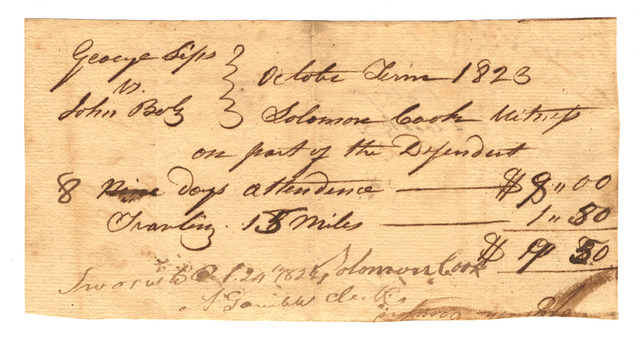 George Sips }
vs. } Octobr Term 1823
John Bolz } Solomon Cook Witness
on part of the Defendent
8 Nine days attendence — $ 8,,00
Travling 15 Miles — 1,,50
$ 9 50
Sworn to 24 Solomon Cook
Gamble Clerk